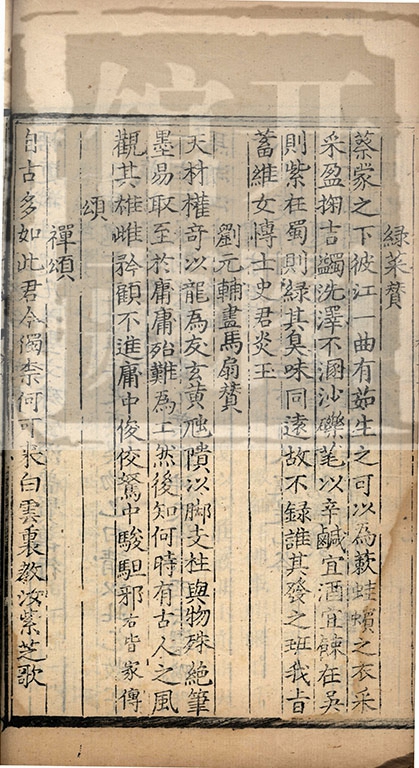 綠菜贊
蔡蒙之下彼江一曲有茹生之可以為蔌蛙蠙之衣采
采盈掬吉蠲洗澤不溷沙礫芼以辛鹹宜酒宜餗在吳
則紫在蜀則綠其臭味同遠故不錄誰其發之班我旨
蓄維女博士史君炎玉
劉元輔畫馬扇贊
天材權奇以龍為友玄黃虺隤以脚文柱與物殊絶筆
墨易取至於庸庸殆難為工然後知何時有古人之風
觀其雄雌矜顧不進庸中俊佼駑中駿駔邪右皆家傳
頌
禪頌
自古多如此君今獨柰何可來白雲裏教汝紫芝歌